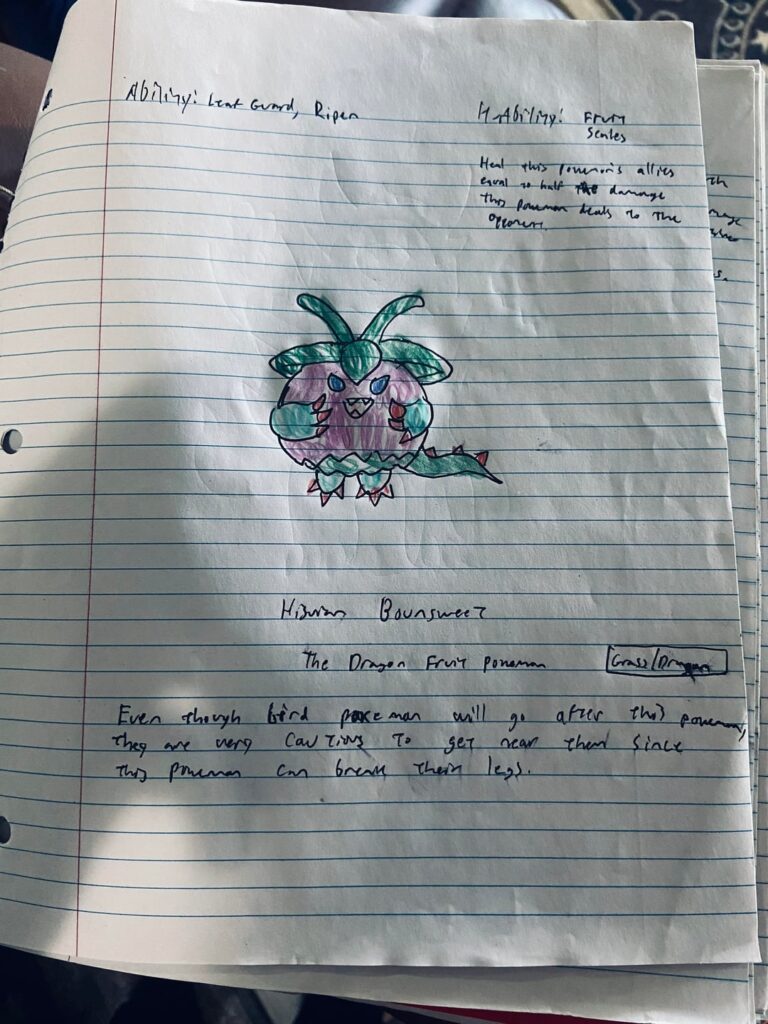 Ability: Leaf Guard, Ripen
H-Ability: Fruit
Scales
Heal this pokemon's allies
equal to half the damage
this pokemon deals to the
opponent.
Hisuian Bounsweet
The Dragon Fruit Pokemon
Grass/Dragon
Even though bird pokemon will go after this pokemon,
they are very cautious to get near them since
this pokemon can break their legs.